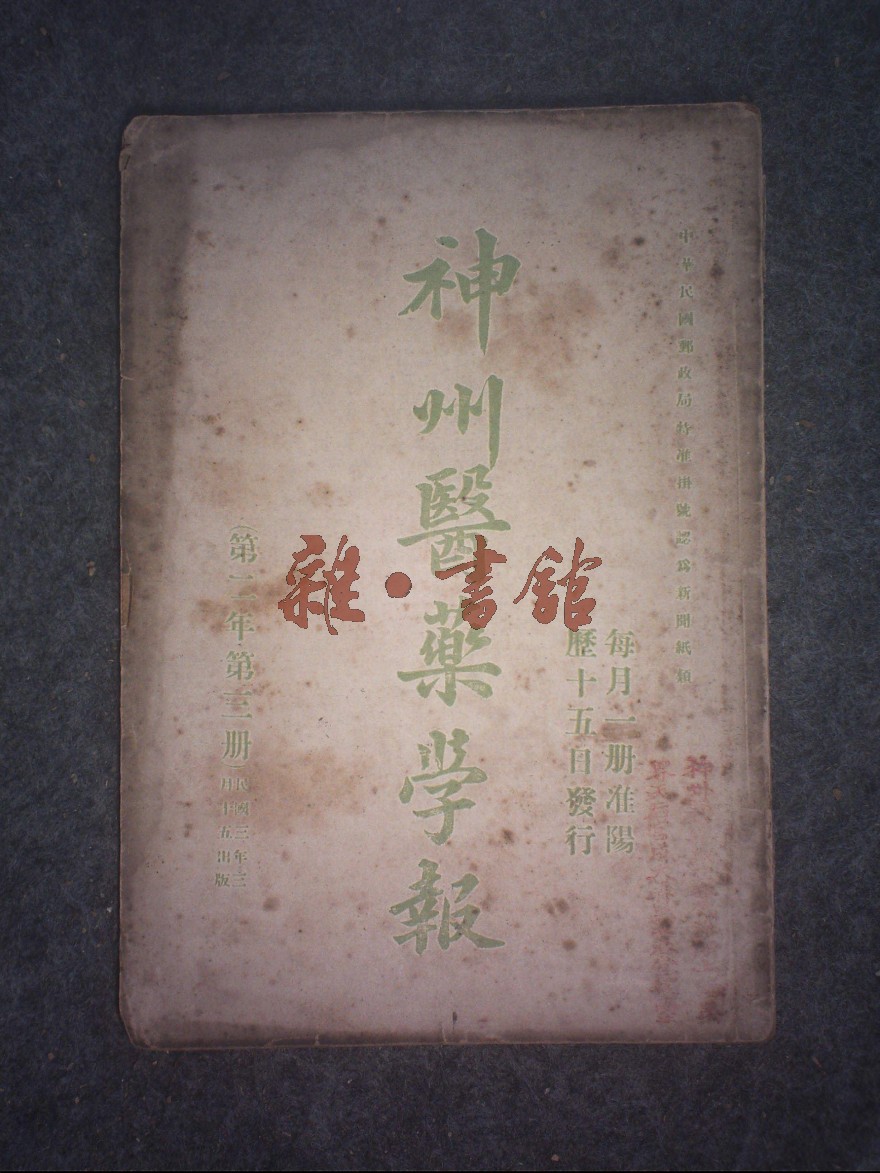 中華民國郵政局特准掛號認爲新聞紙類
每月一册准陽
歷十五日發行
神州醫藥學報
(第二年第三册)
民國三年三
月十五出版
雜·書館